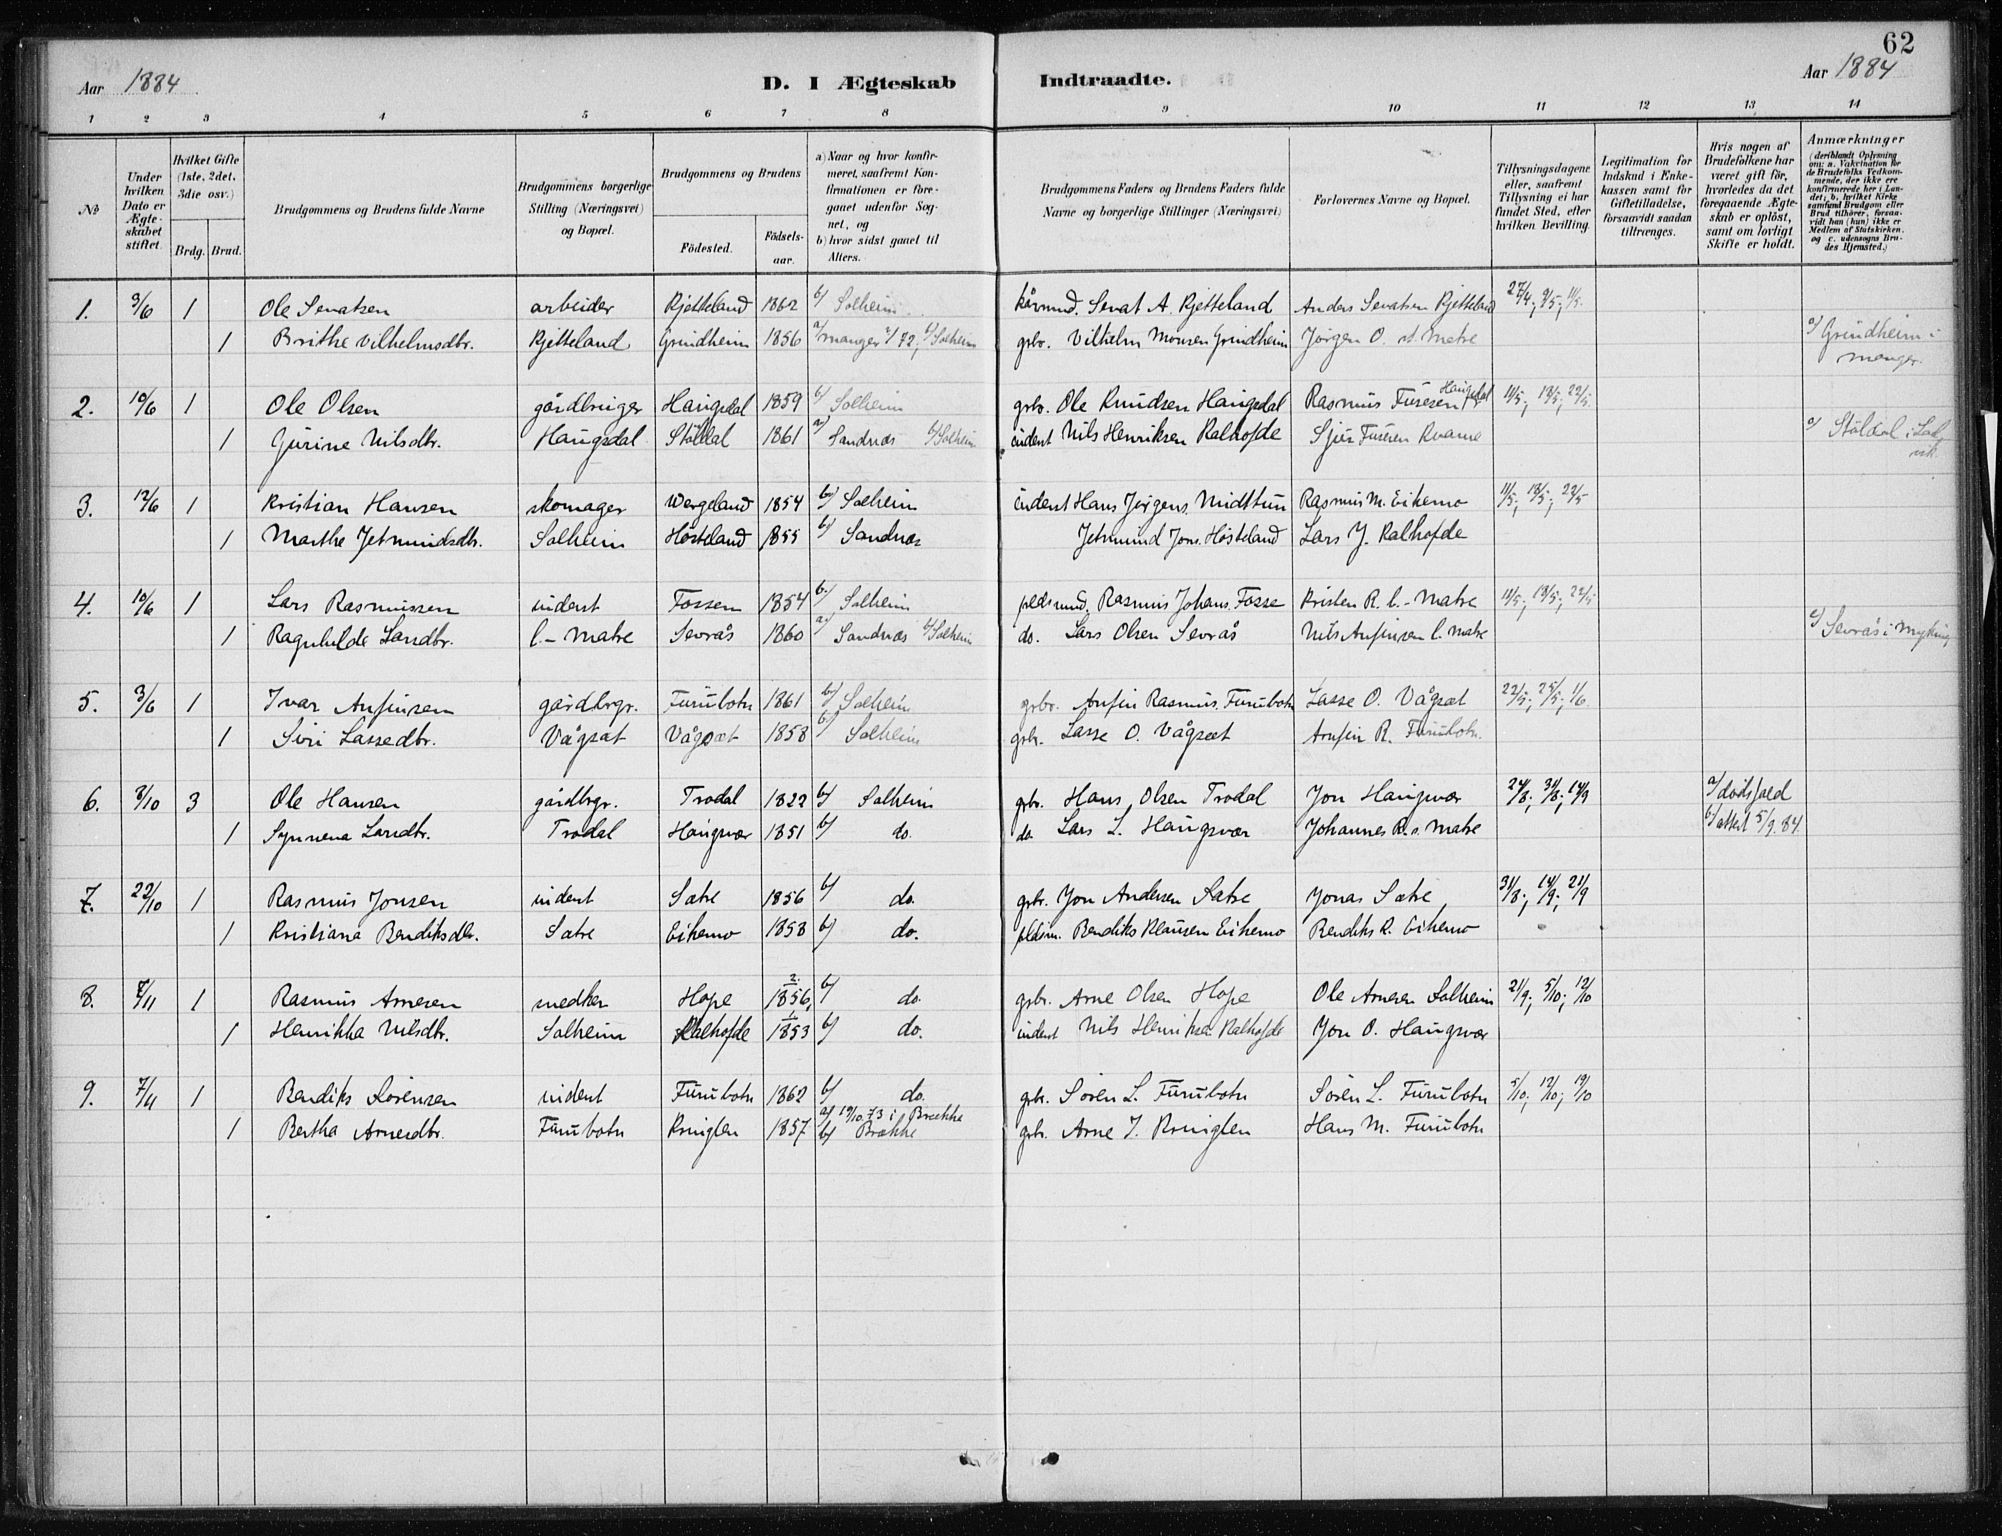 62
Aar 1884
D. I Ægteskab Indtraadte.
Aar 1884
1 2 3 4 5 6 7 8 9 10 11 12 13 14
No
Under hvilken Dato er Ægteskabet stiftet.
Hvilket Gifte (1ste, 2det, 3die osv.)
Brdg. Brud.
Brudgommens og Brudens fulde Navne
Brudgommens borgerlige Stilling (Næringsvei) og Bopæl.
Brudgommens og Brudens
Fødested.
Fødselsaar.
a) Naar og hvor konfirmeret, saafremt Konfirmationen er foregaaet udenfor Sognet, og
b) hvor sidst gaaet til Alters.
Brudgommens Faders og Brudens Faders fulde Navne og borgerlige Stillinger (Næringsvei)
Forlovernes Navne og Bopæl.
Tillysningsdagene eller, saafremt Tillysning ei har fundet Sted, efter hvilken Bevilling.
Legitimation for Indskud i Enkekassen samt for Giftetilladelse, forsaavidt saadan tiltrænges.
Hvis nogen af Brudefolkene har været gift før, hvorledes da det foregaaende Ægteskab er opløst, samt om lovligt Skifte er holdt.
Anmærkninger (deriblandt Oplysning om: a. Vakcination for de Brudefolks Vedkommende, der ikke ere konfirmerede her i Landet; b. hvilket Kirkesamfund Brudgom eller Brud tilhører, forsaavidt han (hun) ikke er Medlem af Statskirken, og c. udensogns Brudes Hjemsted.)
1. 3/6 1 Ole Sevatsen arbeider Kjetteland 1862 b/ Solheim kårmd. Sevat A. Kjetteland Anders Sevatsen Kjetteland 27/4; 9/5; 11/5.
1 Brithe Vilhelmsdtr. Kjetteland Grindheim 1856 a/ manger 72, b/ Solheim grbr. Vilhelm Monsen Grindheim Jørgen O. n. Matre c/ Grindheim i manger.
2. 10/6 1 Ole Olsen gårdbruger Haugsdal 1859 b/ Solheim grbr. Ole Knudsen Haugsdal Rasmus Furesen Haugsdal 11/5; 18/5; 22/5.
1 Gurine Nilsdtr. Haugsdal Stöldal 1861 a/ Sandnæs b/ Solheim inderst Nils Henriksen Kalhofde Sjur Furesen Kvame c/ Stöldal i Ladvik.
3. 12/6 1 Kristian Hansen skomager Wergeland 1854 b/ Solheim inderst Hans Jørgens. Midttun Rasmus M. Eikemo 11/5; 18/5; 22/5
1 Marthe Jetmundsdtr. Solheim Høsteland 1855 b/ Sandnæs Jetmund Jons. Høsteland Lars J. Kalhofde
4. 10/6 1 Lars Rasmussen inderst Fossen 1854 b/ Solheim pldsmnd. Rasmus Johans. Fosse Kristen R. l.-Matre 11/5; 18/5; 22/5
1 Ragnhilde Larsdtr. l-Matre Sevrås 1860 a/ Sandnæs b/ Solheim do. Lars Olsen Sevrås Nils Anfinsen l. Matre c/ Sevrås i Myking
5. 3/6 1 Ivar Anfinsen gårdbrgr. Furubotn 1861 b/ Solheim grbr. Anfin Rasmus. Furubotn Lasse O. Vågsæt 22/5; 25/5; 1/6
1 Siri Lassedtr. Vågsæt Vågsæt 1858 b/ Solheim grbr. Lasse O. Vågsæt Anfin R. Furubotn.
6. 8/10 3 Ole Hansen gårdbrgr. Trodal 1822 b/ Solheim grbr. Hans Olsen Trodal Jon Haugsvær 24/8; 31/8; 14/9 a/ dødsfald
1 Synneva Larsdtr. Trodal Haugsvær 1851 b/ do. do. Lars L. Haugsvær Johannes R. n. Matre b/ attest 5/9. 84.
7. 22/10 1 Rasmus Jonsen inderst Sætre 1856 b/ do. grbr. Jon Andersen Sætre Jonas Sætre 31/8; 14/9; 21/9
1 Kristiana Bendiksdtr. Sætre Eikemo 1858 b/ do. pldsm. Bendiks Klausen Eikemo Bendiks K. Eikemo
8. 7/11 1 Rasmus Arnesen snedker Hope 1856 b/ do. grbr. Arne Olsen Hope Ole Arnesen Solheim 21/9; 5/10; 12/10
1 Henrikka Nilsdtr. Solheim Kalhofde 1853 b/ do. inderst Nils Henriksen Kalhofde Jon O. Haugsvær
9. 7/11 1 Bendiks Sørensen inderst Furubotn 1862 b/ do. grbr. Sören L. Furubotn Sören L. Furubotn 5/10; 12/10; 19/10
1 Bertha Arnesdtr. Furubotn Kringlen 1857 a/ 19/10 73 i Brække b/ Brække grbr. Arne J. Kringlen Hans M. Furubotn